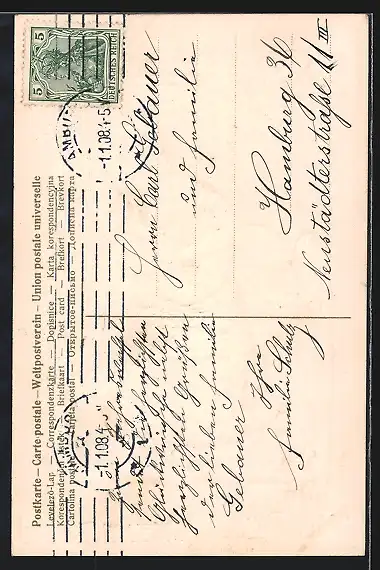 Postkarte — Carte postale — Weltpostverein — Union postale universelle
Levelező-Lap — Correspondenzkarte — Dopisnice — Karta korespondencyjna
Korespondenční lístek — Briefkaart — Post card — Brefkort — Brevkort
Cartolina postale — Tarjeta postal — Открытое письмо — Дописна карта
5 5
DEUTSCHES REICH
-1.1.08.4-5
-1.1.08.4
Herrn Carl Gebauer
und Familie
Hamburg 36
Neustädterstraße 11 III
Zum
die herzlichsten
Glückwünsche nebst
herzlichsten Grüßen
der lieben Familie
Gebauer
Ihre
Familie Schulz